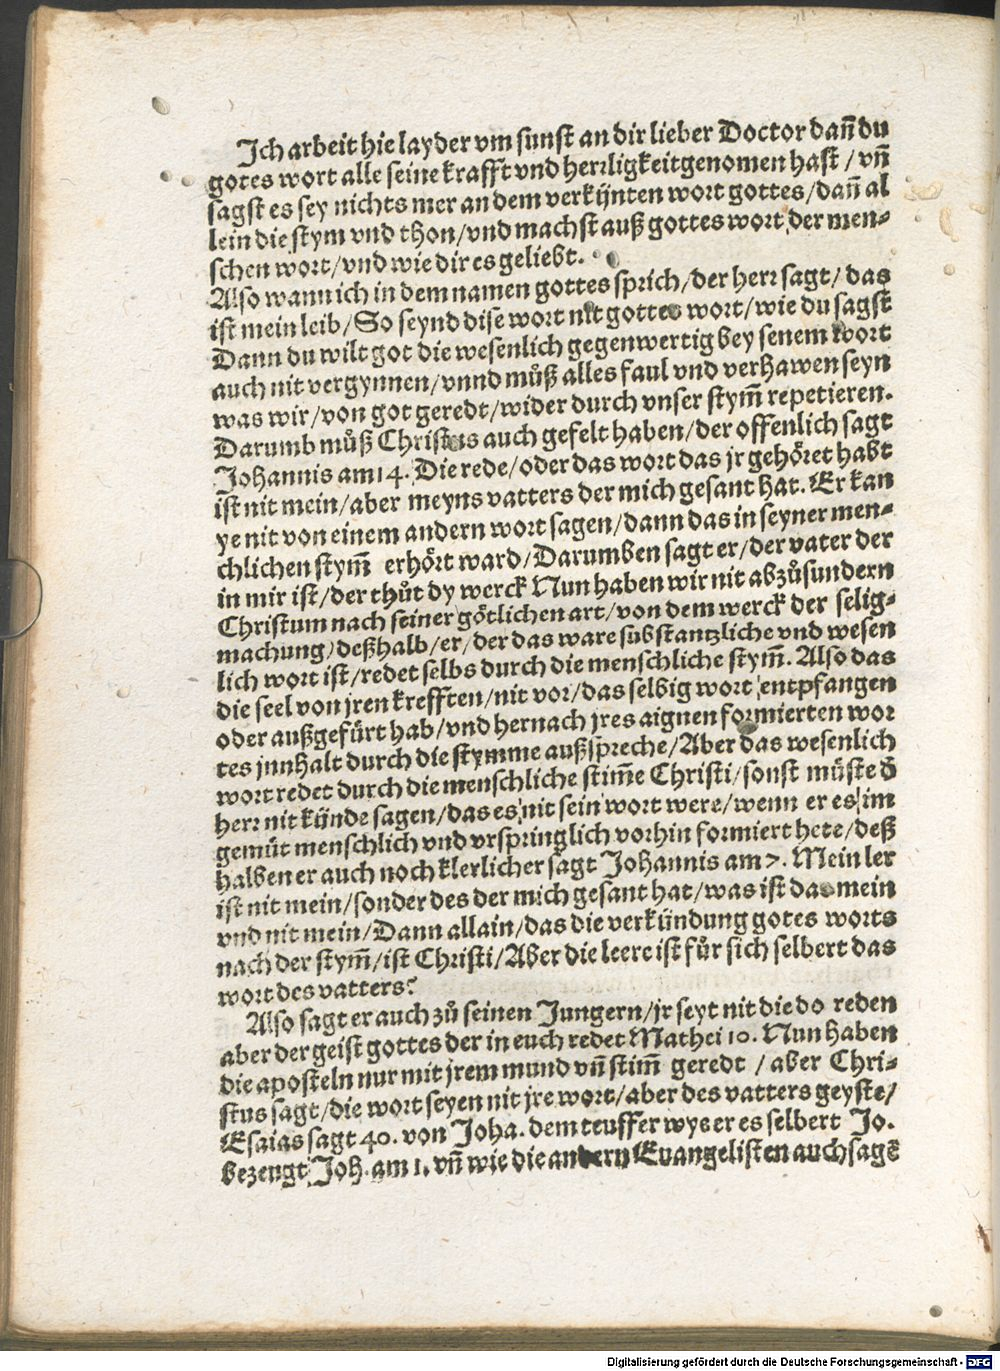 Ich arbeit hie layder vm sunst an dir lieber Doctor dañ du
gotes wort alle seine krafft vnd herrligkeit genomen hast / vñ
sagst es sey nichts mer an dem verkünten wort gottes / dañ al
lein die stym vnd thon / vnd machst auß gottes wort der men-
schen wort / vnd wie dir es geliebt.
Also wann ich in dem namen gottes sprich / der herr sagt / das
ist mein leib / So seynd dise wort nit gottes wort / wie du sagst
Dann du wilt got die wesenlich gegenwertig bey senem wort
auch nit vergynnen / vnnd můß alles faul vnd verhawen seyn
was wir / von got geredt / wider durch vnser stym̃ repetieren.
Darumb můß Christus auch gefelt haben / der offenlich sagt
Johannis am 14. Die rede / oder das wort das jr gehöret habt
ist nit mein / aber meyns vatters der mich gesant hat. Er kan
ye nit von einem andern wort sagen / dann das in seyner men-
chlichen stym̃ erhört ward / Darumben sagt er / der vater der
in mir ist / der thůt dy werck Nun haben wir nit abzůsundern
Christum nach seiner götlichen art / von dem werck der selig-
machung / deßhalb / er / der das ware substantzliche vnd wesen
lich wort ist / redet selbs durch die menschliche stym̃. Also das
die seel von jren krefften / nit vor / das selbig wort entpfangen
oder außgefürt hab / vnd hernach jres aignen formierten wor
tes jnnhalt durch die stymme außspreche / Aber das wesenlich
wort redet durch die menschliche stim̃e Christi / sonst müste d̃
herr nit künde sagen / das es nit sein wort were / wenn er es im
gemüt menschlich vnd vrspringlich vorhin formiert hete / deß
halben er auch noch klerlicher sagt Johannis am 7. Mein ler
ist nit mein / sonder des der mich gesant hat / was ist das mein
vnd nit mein / Dann allain / das die verkündung gotes worts
nach der stym̃ / ist Christi / Aber die leere ist für sich selbert das
wort des vatters?
Also sagt er auch zů seinen Jungern / jr seyt nit die do reden
aber der geist gottes der in euch redet Mathei 10. Nun haben
die aposteln nur mit jrem mund vñ stim̃ geredt / aber Chri-
stus sagt / die wort seyen nit jre wort / aber des vatters geyste /
Esaias sagt 40. von Joha. dem teuffer wye er es selbert Jo.
bezeugt Joh. am 1. vñ wie die andern Euangelisten auch sagẽ
Digitalisierung gefördert durch die Deutsche Forschungsgemeinschaft - DFG